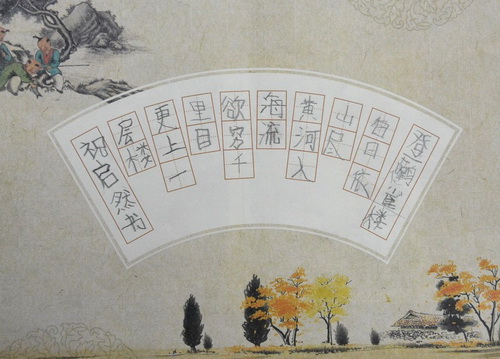 登鹳雀楼
白日依
山尽
黄河入
海流
欲穷千
里目
更上一
层楼
祝启然书